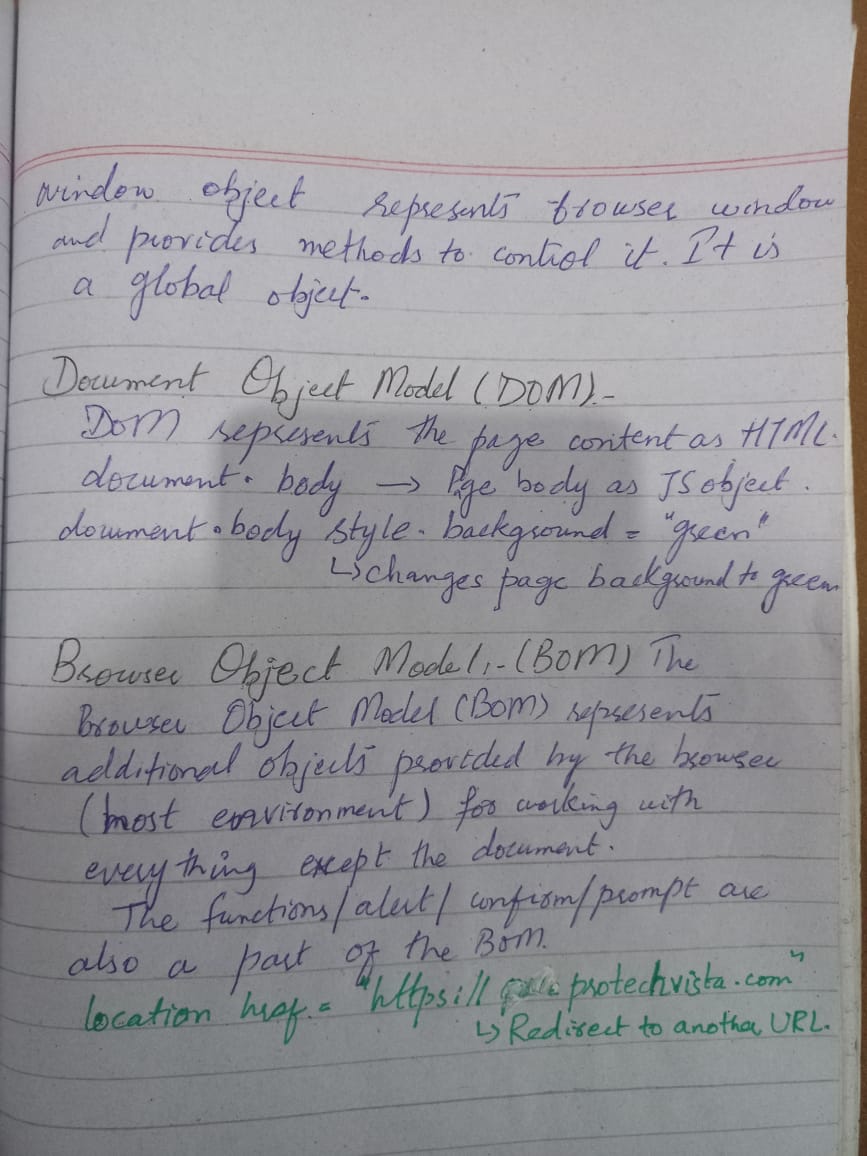 window object represents browser window
and provides methods to control it. It is
a global object.
Document Object Model (DOM).-
DOM represents the page content as HTML.
document. body → Pge body as JS object.
document.body style. background = "green"
↳ changes page background to green
Browser Object Model,-(BOM) The
Browser Object Model (BOM) represents
additional objects provided by the browser
(host environment) for working with
every thing except the document.
The functions/alert/confirm/prompt are
also a part of the BOM.
location href. = "https://protechvista.com"
↳ Redirect to another URL.